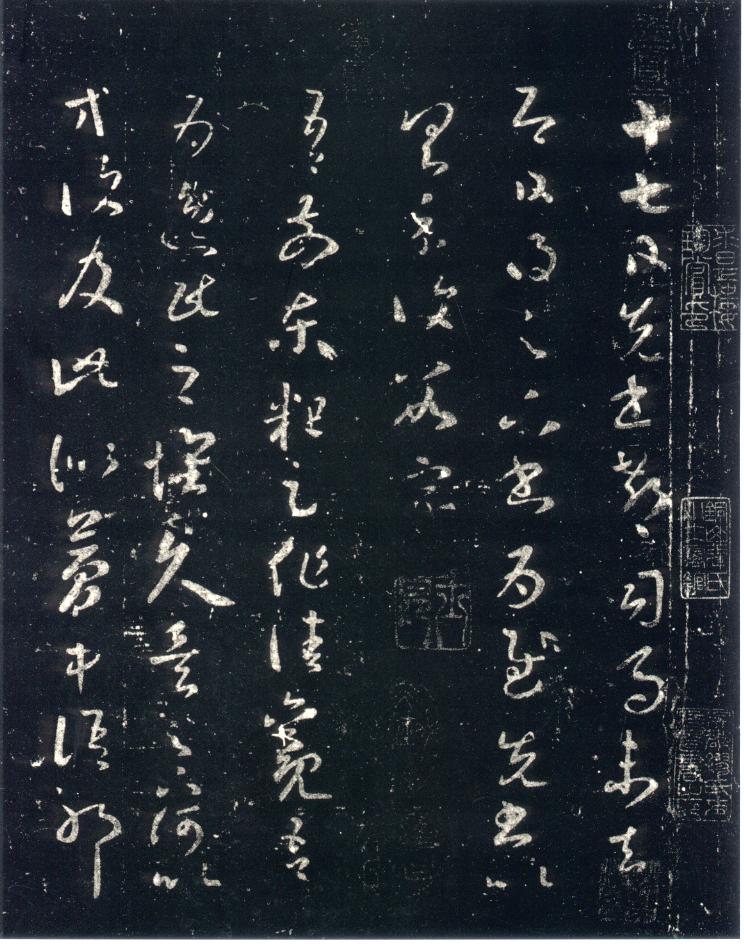 十七日先書郗司馬未去
即日得足下書為慰先書以
具示復數字
吾前東粗足作佳觀吾
為逸民之懷久矣足下何以
等復及此似夢中語耶